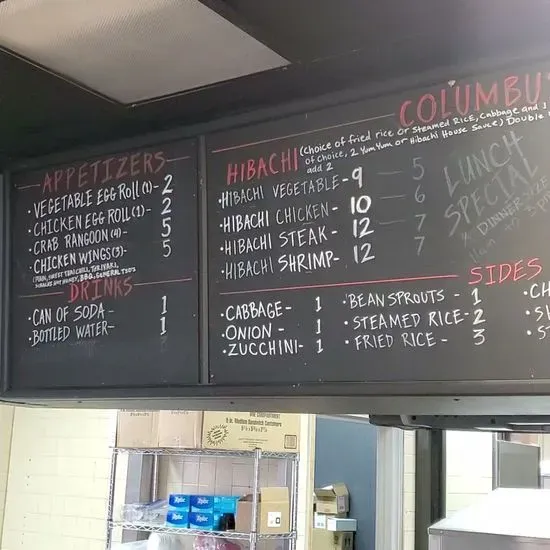 APPETIZERS
• VEGETABLE EGG ROLL (1) - 2
• CHICKEN EGG ROLL (1) - 2
• CRAB RANGOON (4) - 5
• CHICKEN WINGS (3) - 5
(PLAIN, SWEET THAI CHILI, TERIYAKI,
HONEY, BBQ, GENERAL TSO'S
DRINKS
• CAN OF SODA - 1
• BOTTLED WATER - 1
COLUMBU
HIBACHI (Choice of fried rice or Steamed RICE, Cabbage and
of Choice, 2 Yum Yum or Hibachi House Sauce) Double
add 2
• HIBACHI VEGETABLE - 9 - 5
• HIBACHI CHICKEN - 10 - 6
• HIBACHI STEAK - 12 - 7
• HIBACHI SHRIMP - 12 7
LUNCH
SPECIAL
DINNER SIZE
SIDES
• CABBAGE - 1
• ONION - 1
• ZUCCHINI - 1
• BEAN SPROUTS - 1
• STEAMED RICE - 2
• FRIED RICE - 3
• CH
• S